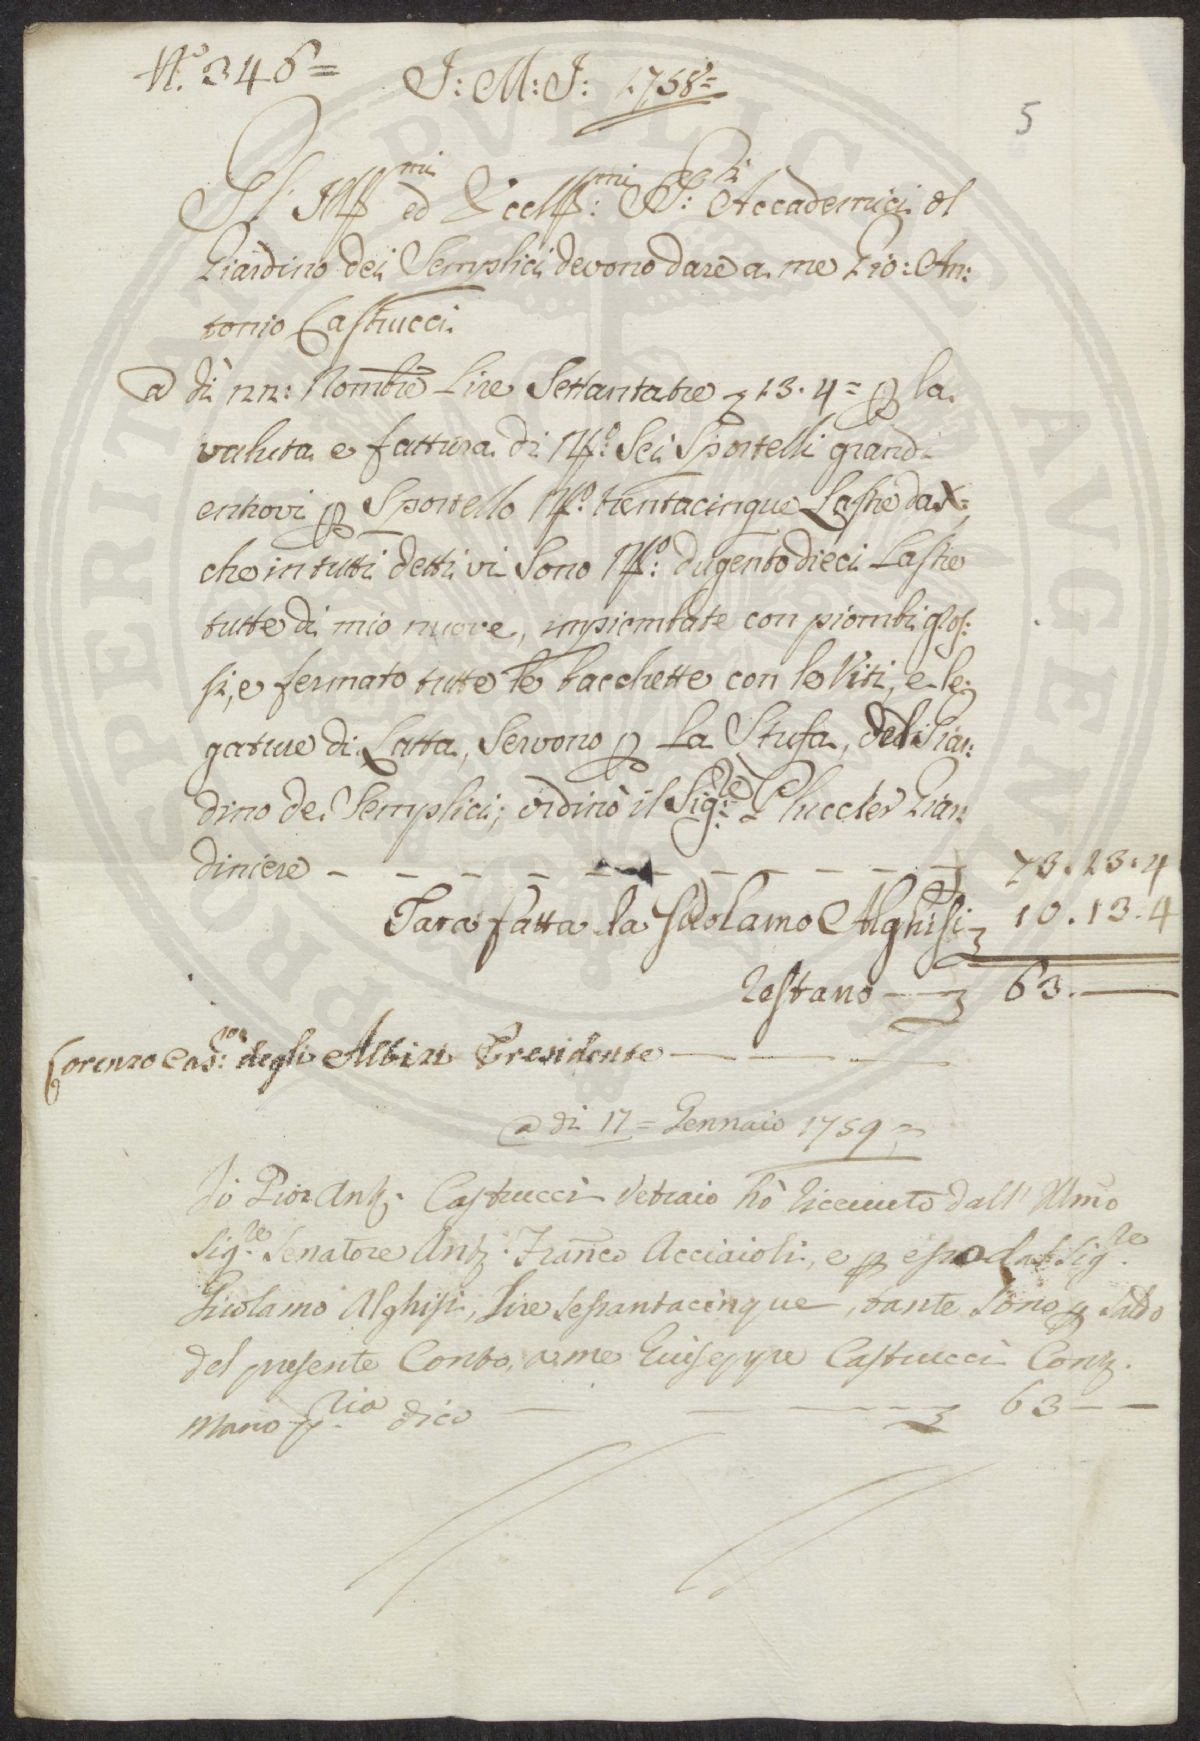 N.° 346=
J: M: J: 1758=
5
Gl' Ill.mi ed Eccll.mi SS.ri Accademici del
Giardino dei Semplici devono dare a me Gio: An:
tonio Castrucci
a dì 22: Nombre Lire Settantatre 13.4= p la
valuta e fattura di N.° Sei Sportelli grandi
entrovi p Sportello N.° trentacinque Lastre
che in tutti detti vi Sono N.°: dugento dieci Lastre
tutte di mio nuove, impiombate con piombi gros:
si, e fermato tutte le bacchette con le Viti, e le:
gature di Latta, Servono p La Stufa, del Giar:
dino de Semplici; ordinò il Sig.re Pluccler Giar:
diniere 73.13.4
Tara fatta da Girolamo Alghisi 10.13.4
Restano 63.
Lorenzo degli Albizi Presidente
a di 17= Gennaio 1759
Io Gio: Ant.° Castrucci Vetraio hò riceuuto dall' Illmo
Sig.re Senatore Ant.° Franco Acciaioli, e p esso dal Sig.re
Girolamo Alghisi, Lire sessantacinque, tante Sono p Saldo
del presente Conto, a me Giuseppe Castrucci Cont.
Mano p.ria dico 63
PROSPERITATI PVBLICAE AVGENDAE